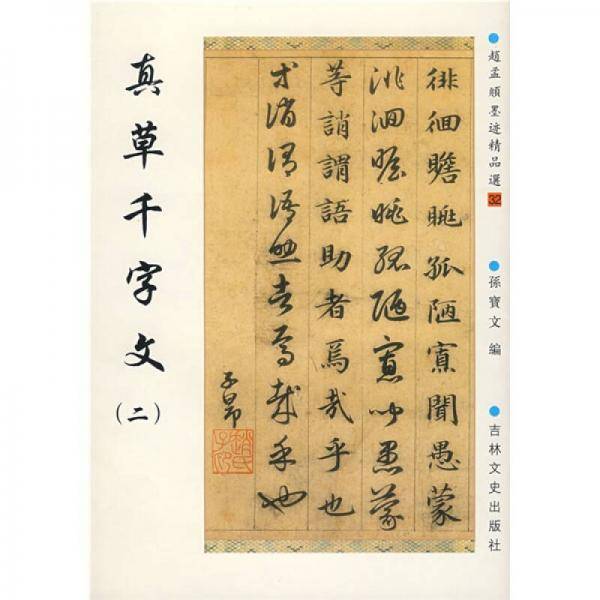 趙孟頫墨迹精品選 32
孫寶文 編
吉林文史出版社
徘徊瞻眺孤陋寡聞愚蒙
徘徊瞻眺孤陋寡聞愚蒙
等誚謂語助者焉哉乎也
等誚謂語助者焉哉乎也
子昂
趙氏子昂
真草千字文
（二）